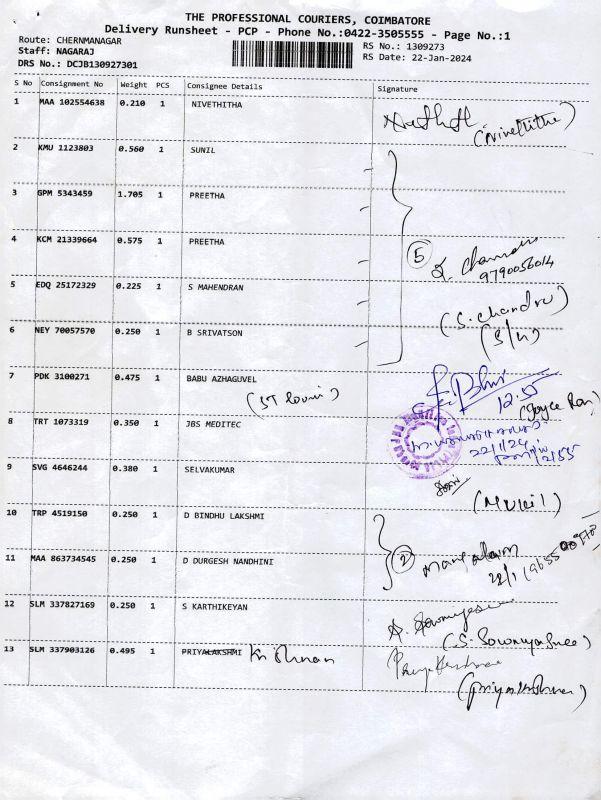 THE PROFESSIONAL COURIERS, COIMBATORE
Delivery Runsheet - PCP - Phone No.:0422-3505555 - Page No.:1
Route: CHERNMANAGAR
RS No.: 1309273
Staff: NAGARAJ
RS Date: 22-Jan-2024
DRS No.: DCJB130927301
S No Consignment No Weight PCS Consignee Details Signature
1 MAA 102554638 0.210 1 NIVETHITHA
(Nivethitha)
2 KMU 1123803 0.560 1 SUNIL
3 GPM 5343459 1.705 1 PREETHA
4 KCM 21339664 0.575 1 PREETHA
5
9790056014
5 EDQ 25172329 0.225 1 S MAHENDRAN
(S. Chandru)
(S/W)
6 NEY 70057570 0.250 1 B SRIVATSON
7 PDK 3100271 0.475 1 BABU AZHAGUVEL
12:55
8 TRT 1073319 0.350 1 JBS MEDITEC
22/1/24
9 SVG 4646244 0.380 1 SELVAKUMAR
10 TRP 4519150 0.250 1 D BINDHU LAKSHMI
2
11 MAA 863734545 0.250 1 D DURGESH NANDHINI
12 SLM 337827169 0.250 1 S KARTHIKEYAN
(S. Sowmyasree)
13 SLM 337903126 0.495 1 PRIYALAKSHMI Krishnan
(Priya Krishnan)